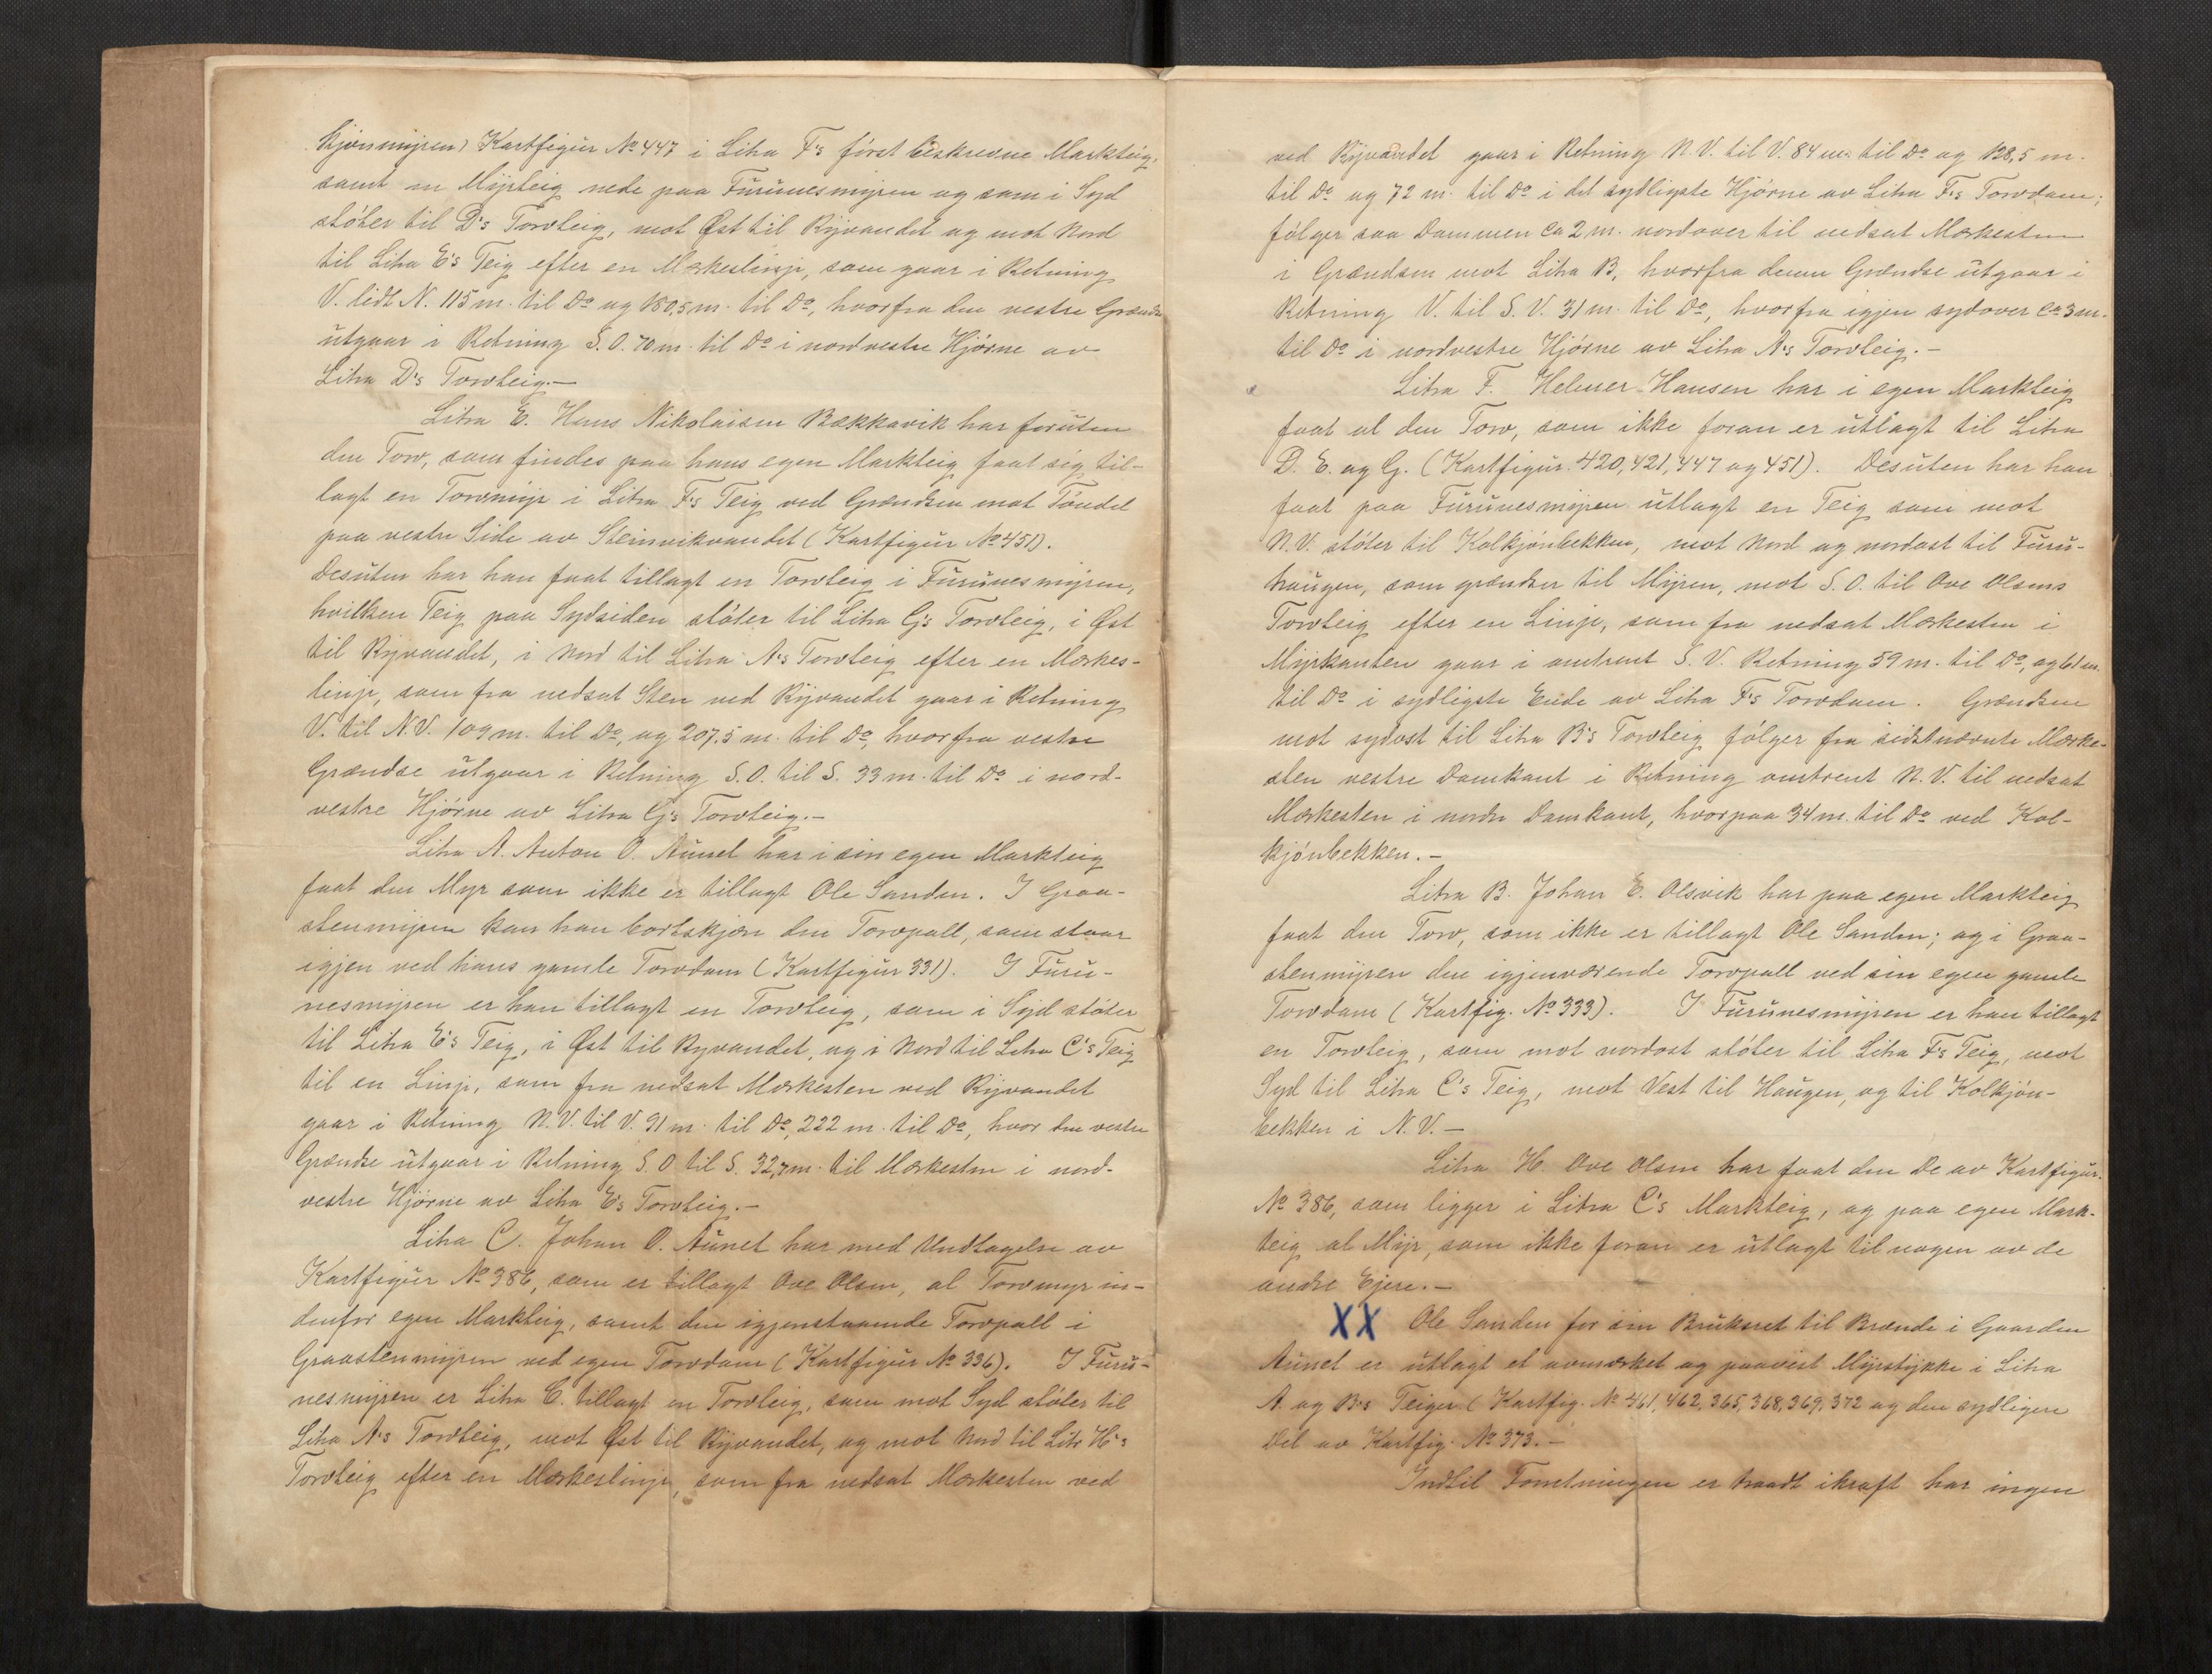 kjønmyren) Kartfigur № 447 i Litra F's først beskrevne Markteig,
samt en Myrteig nede paa Furunesmyren og som i Syd
støter til D's Torvteig, mot Øst til Ryvandet og mot Nord
til Litra E's Teig efter en Merkeslinje, som gaar i Retning
V. lidt N. 115 m. til Do og 180,5 m. til Do, hvorfra den vestre Grændse
utgaar i Retning S.O. 70 m. til Do i nordvestre Hjørne av
Litra D's Torvteig.—
Litra E. Hans Nikolaisen Bækkavik har foruten
den Torv, som findes paa hans egen Markteig faat sig til-
lagt en Torvmyr i Litra F's Teig ved Grændsen mot Tøndel
paa vestre Side av Steinvikvandet (Kartfigur № 451).
Desuten har han faat tillagt en Torvteig i Furunesmyren,
hvilken Teig paa Sydsiden støter til Litra G's Torvteig, i Øst
til Ryvandet, i Nord til Litra A's Torvteig efter en Merkes-
linje, som fra nedsat Sten ved Ryvandet gaar i Retning
V. til N.V. 109 m. til Do, og 207,5 m. til Do, hvorfra vestre
Grændse utgaar i Retning S.O. til S. 33 m. til Do i nord-
vestre Hjørne av Litra G's Torvteig.—
Litra A. Anton O. Aunet har i sin egen Markteig
faat den Myr som ikke er tillagt Ole Sanden. I Graa-
stenmyren kan han bortskjære den Torvpall, som staar
igjen ved hans gamle Torvdam (Kartfigur 331). I Furu-
nesmyren er han tillagt en Torvteig, som i Syd støter
til Litra E's Teig, i Øst til Ryvandet, og i Nord til Litra C's Teig
til en Linje, som fra nedsat Merkesten ved Ryvandet
gaar i Retning N.V. til V. 91 m. til Do, 222 m. til Do, hvor den vestre
Grændse utgaar i Retning S.O til S. 32,7 m. til Merkesten i nord-
vestre Hjørne av Litra E's Torvteig.—
Litra C. Johan O. Aunet har med Undtagelse av
Kartfigur № 386, som er tillagt Ove Olsen, al Torvmyr in-
denfor egen Markteig, samt den igjenstaaende Torvpall i
Graastenmyren ved egen Torvdam (Kartfigur № 336). I Furu-
nesmyren er Litra C. tillagt en Torvteig, som mot Syd støter til
Litra A's Torvteig, mot Øst til Ryvandet, og mot Nord til Litr H's
Torvteig efter en Merkeslinje, som fra nedsat Merkesten ved
ved Ryvandet gaar i Retning N.V. til V. 84 m. til Do og 128,5 m.
til Do og 72 m. til Do i det sydligste Hjørne av Litra F's Torvdam;
følger saa Dammen ca 2 m. nordover til nedsat Merkesten
i Grændsen mot Litra B, hvorfra denne Grændse utgaar i
Retning V. til S.V. 31 m. til Do, hvorfra igjen sydover ca 3 m.
til Do i nordvestre Hjørne av Litra A's Torvteig.—
Litra F. Helmer Hansen har i egen Markteig
faat al den Torv, som ikke foran er utlagt til Litra
D. E. og G. (Kartfigur. 420, 421, 447 og 451). Desuten har han
faat paa Furunesmyren utlagt en Teig som mot
N.V. støter til Kolkjønbekken, mot Nord og nordost til Furu-
haugen, som grændser til Myren, mot S.O. til Ove Olsens
Torvteig efter en Linje, som fra nedsat Merkesten i
Myrkanten gaar i omtrent S.V. Retning 59 m. til Do, og 61 m.
til Do i sydligste Ende av Litra F's Torvdam. Grændsen
mot sydost til Litra B's Torvteig følger fra sidstnævnte Merke-
sten vestre Damkant i Retning omtrent N.V. til nedsat
Merkesten i nordre Damkant, hvorpaa 34 m. til Do ved Kol-
kjønbekken.—
Litra B. Johan E. Olsvik har paa egen Markteig
faat den Torv, som ikke er tillagt Ole Sanden; og i Graa-
stenmyren den igjenværende Torvpall ved sin egen gamle
Torvdam (Kartfig. № 333). I Furunesmyren er han tillagt
en Torvteig, som mot nordost støter til Litra F's Teig, mot
Syd til Litra C's Teig, mot Vest til Haugen, og til Kolkjøn-
bekken i N.V.—
Litra H. Ove Olsen har faat den De av Kartfigur.
№ 386, som ligger i Litra C's Markteig, og paa egen Mark-
teig al Myr, som ikke foran er utlagt til nogen av de
andre Ejere.—
XX Ole Sanden for sin Bruksret til Brænde i Gaarden
Aunet er utlagt et avmerket og paavist Myrstykke i Litra
A. og B's Teiger (Kartfig. № 361, 462, 365, 368, 369, 372 og den sydligere
Del av Kartfig. № 373.—
Indtil Forretningen er traadt ikraft har ingen